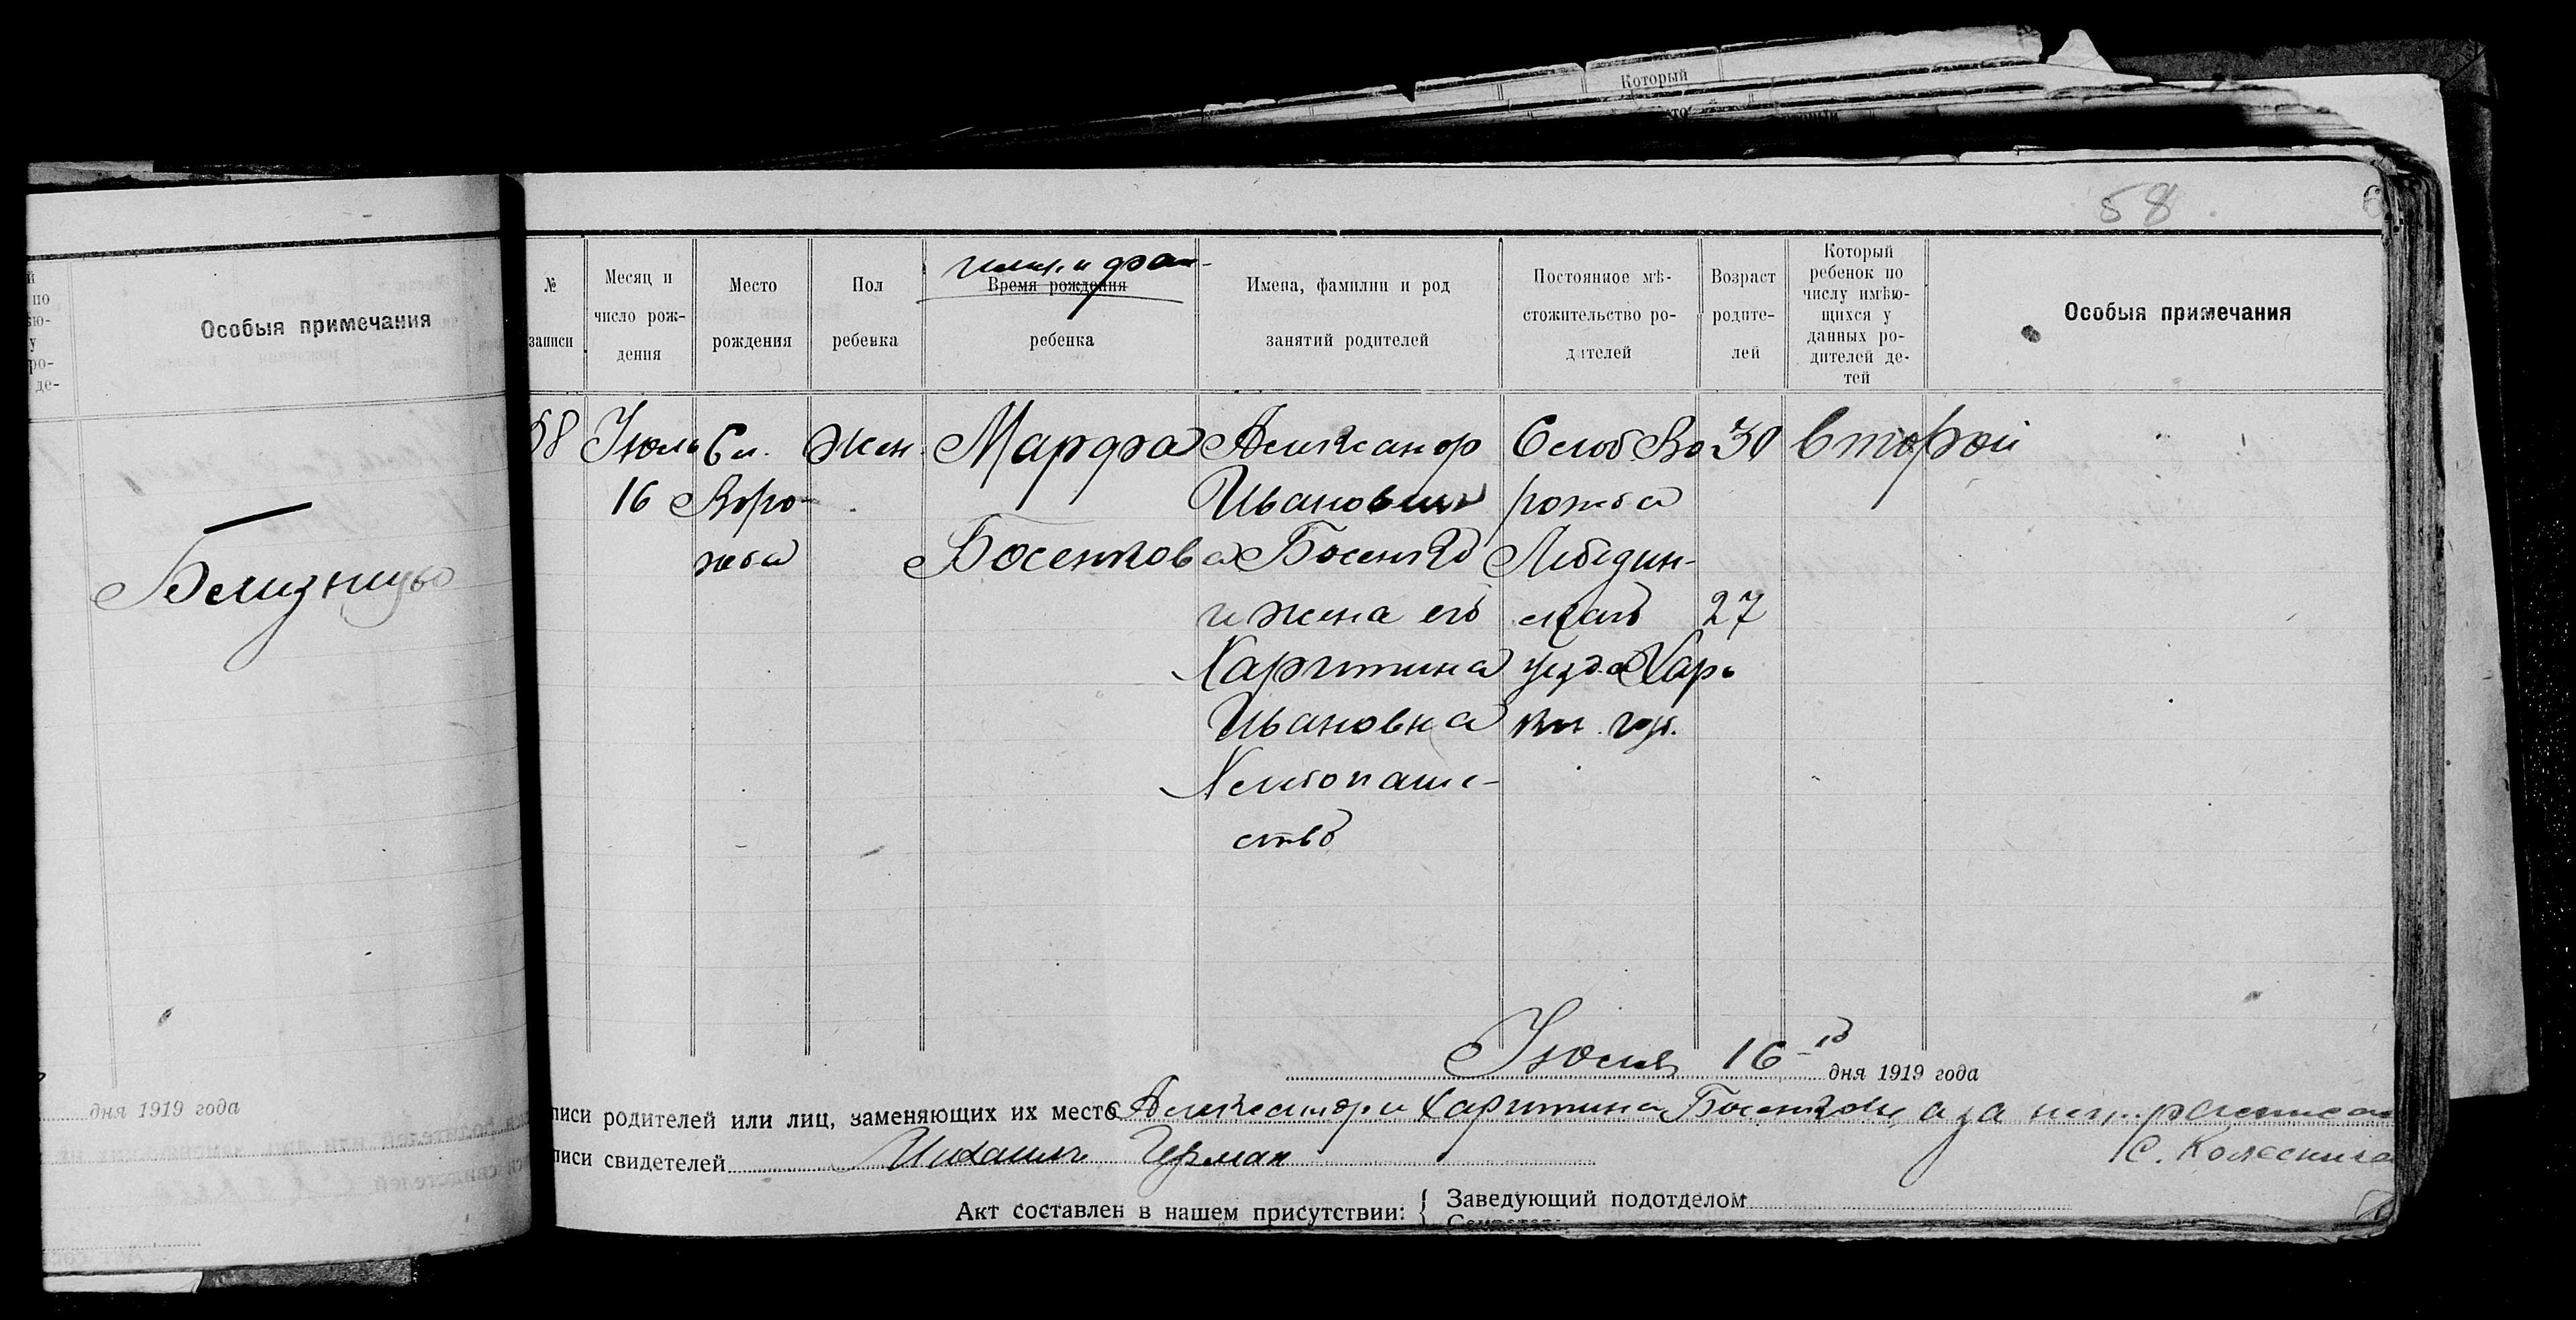 Который
58
Особыя примечания
Близнецы
дня 1919 года
№ записи
Месяц и число рождения
Место рождения
Пол ребенка
имя и фам
Время рождения
ребенка
Имена, фамилии и род занятий родителей
Постоянное мѣстожительство родителей
Возраст родителей
Который ребенок по числу имѣющихся у данных родителей детей
Особыя примечания
58
Июль
16
Сл.
Воро-
жба
Жен.
Марфа
Босенкова
Александр
Иванович
Босенко
и жена его
Харитина
Ивановна
Хлебопаше-
ство
Слоб Во
рожба
Лебедин-
скаго
уезда Харь
ков. губ.
30
27
Второй
Июля 16-го дня 1919 года
писи родителей или лиц, заменяющих их место Александр и Харитина Босенковы, а за них расписал
С. Колесник
писи свидетелей Михаил Герман
Акт составлен в нашем присутствии:
Заведующий подотделом